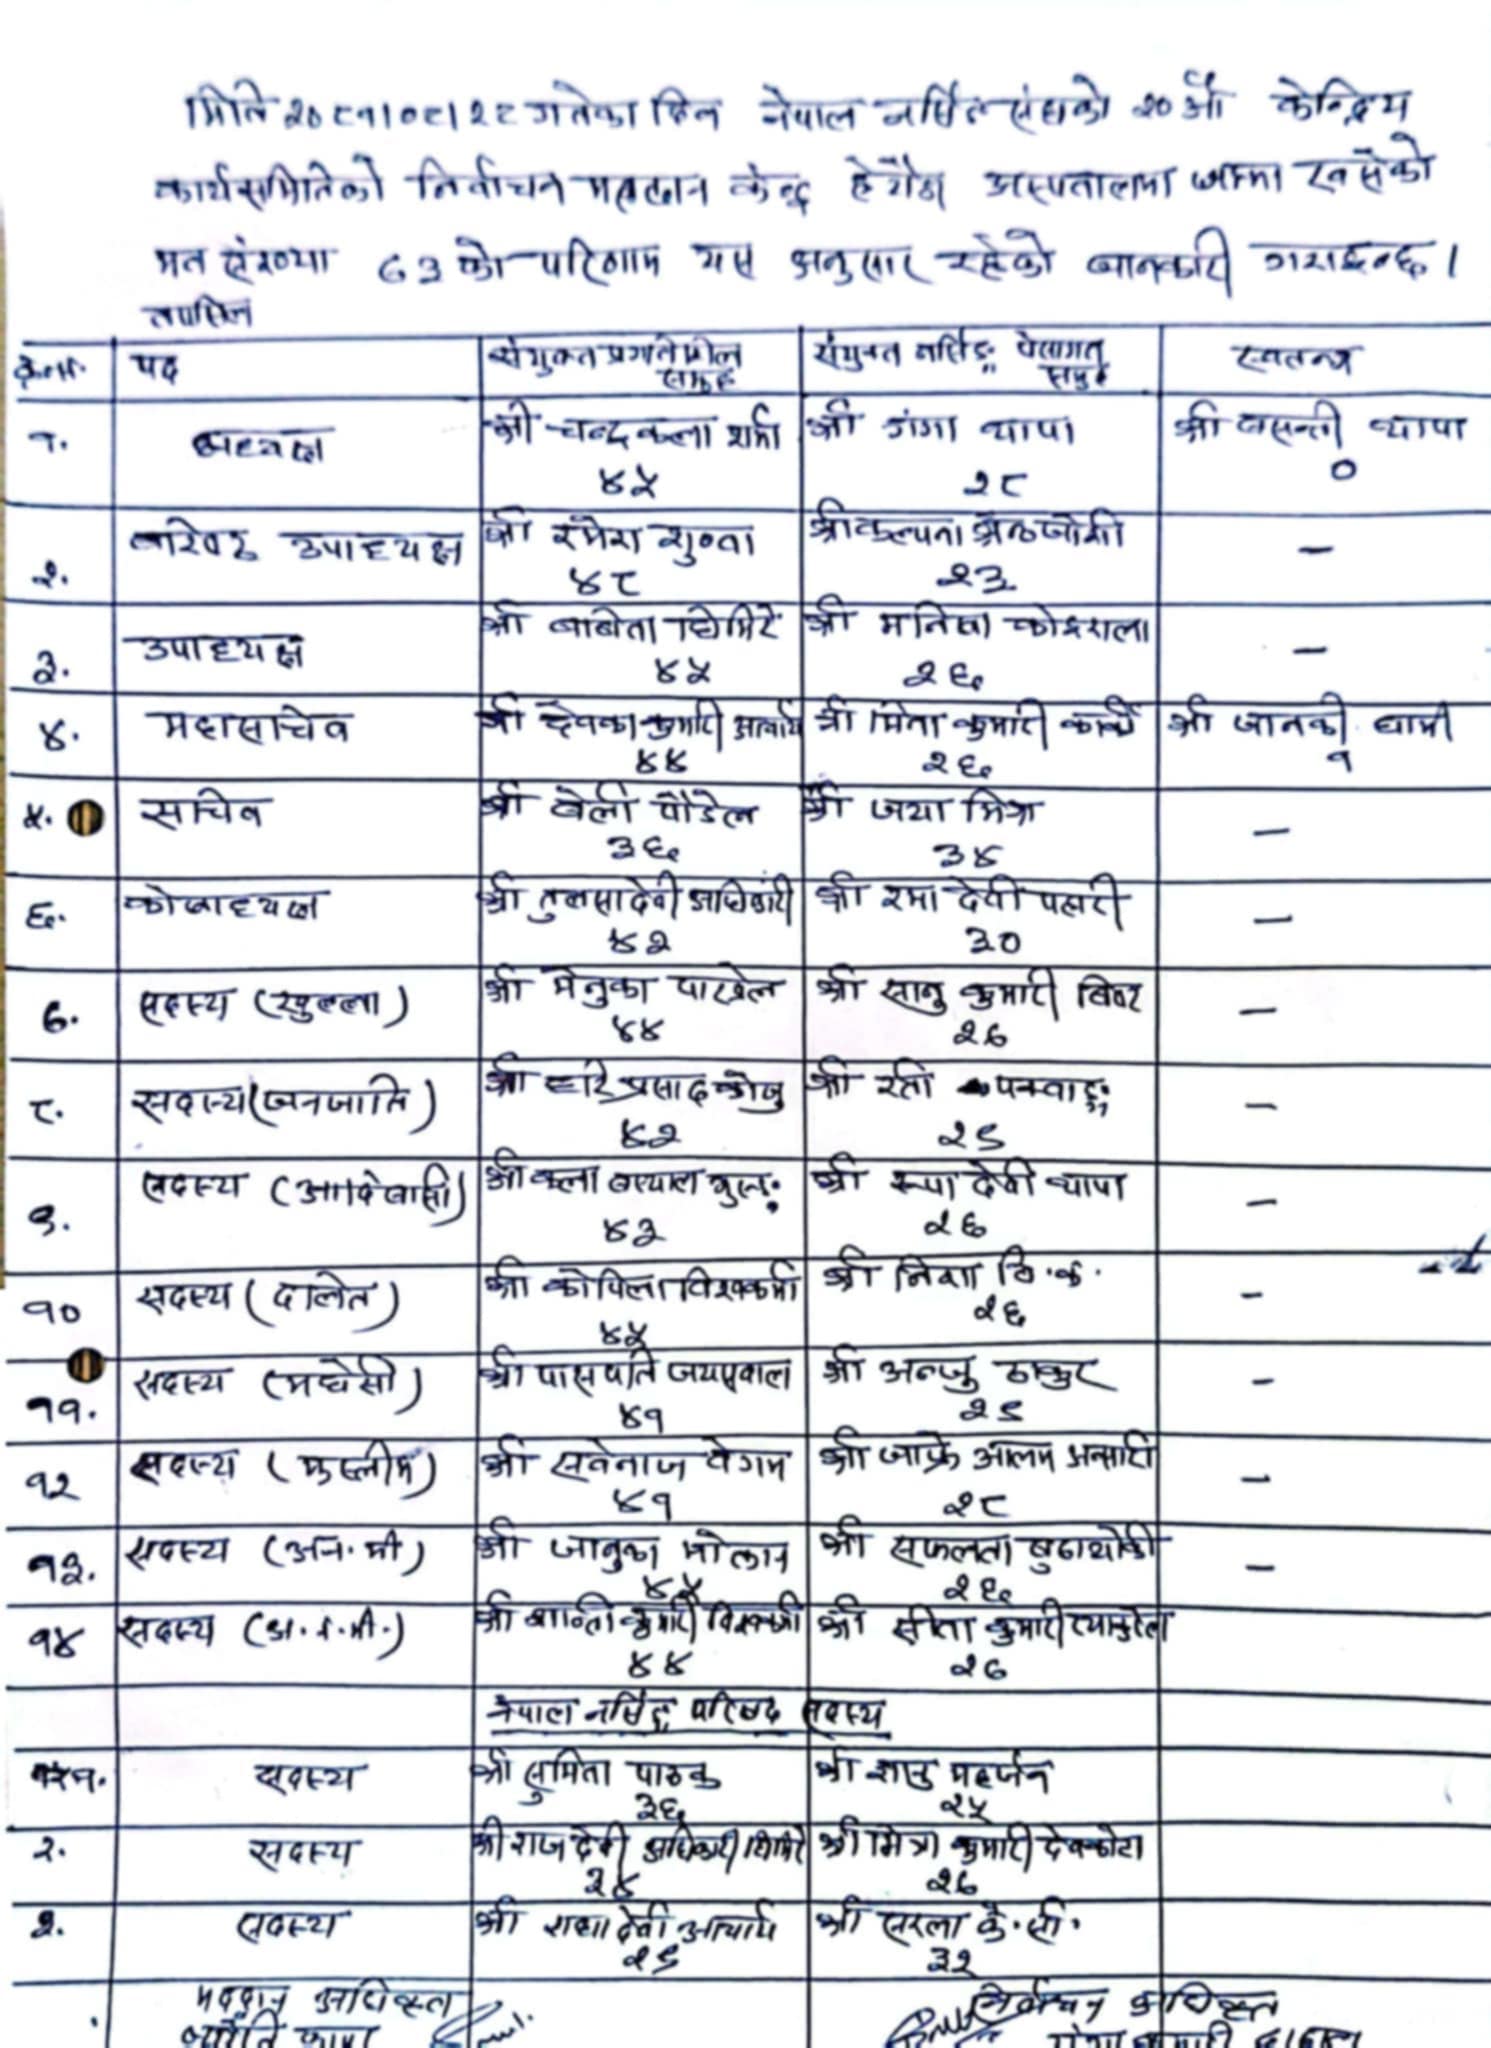 मिति २०८१।०८।२८ गतेका दिन नेपाल नर्सिङ संघको २०औं केन्द्रिय
कार्यसमितिको निर्वाचन मतदान केन्द्र हेटौडा अस्पतालमा जम्मा खसेको
मत संख्या ७३को परिणाम यस अनुसार रहेको जानकारी गराइन्छ।
तपसिल
क्र.सं. पद संयुक्त प्रगतिशील समुह संयुक्त नर्सिङ पेसागत समुह स्वतन्त्र
१. अध्यक्ष श्री चन्द्रकला शर्मा श्री गंगा थापा श्री बसन्ती थापा
४५ २८ ०
२. बरिष्ठ उपाध्यक्ष श्री रमेश शुण्वा श्री कल्पना श्रेष्ठ जोशी –
४८ २३
३. उपाध्यक्ष श्री बबिता घिमिरे श्री मनिषा कोइराला –
४५ २६
४. महासचिव श्री देवका कुमारी आचार्य श्री मिना कुमारी कार्की श्री जानकी धामी
४४ २६ १
५. सचिव श्री बेली पौडेल श्री जया मिश्रा –
३६ ३४
६. कोषाध्यक्ष श्री तुलसादेवी अधिकारी श्री रमा देवी पहारी –
४२ ३०
७. सदस्य (खुल्ला) श्री मेनुका पाख्रेल श्री सानु कुमारी विष्ट –
४४ २७
८. सदस्य (जनजाति) श्री हरि प्रसाद कोजु श्री रती पक्वाङ –
४२ २९
९. सदस्य (आदिबासी) श्री कला बस्याल गुरुङ श्री रुपा देवी थापा –
४३ २६
१० सदस्य (दलित) श्री कोपिला विश्वकर्मा श्री निशा वि.क. –
४५ २६
११. सदस्य (मधेसी) श्री पासपति जयसवाल श्री अन्जु ठाकुर –
४१ २९
१२ सदस्य (मुस्लीम) श्री सवेनाज वेगम श्री जाफ्रे आलम अन्सारी –
४१ २८
१३. सदस्य (अन.मी) श्री जानुका मोक्तान श्री सफलता बुढाथोकी –
४५ २६
१४ सदस्य (अ.न.मी.) श्री शान्ति कुमारी विश्वकर्मा श्री सीता कुमारी त्याकुरेल
४४ २७
नेपाल नर्सिङ परिषद सदस्य
१. सदस्य श्री सुमिता पाठक श्री शानु महर्जन
३६ २५
२. सदस्य श्री राज देवी अधिकारी घिमिरे श्री मित्रा कुमारी देवकोटा
३४ २७
३. सदस्य श्री राधा देवी आचार्य श्री सरला के.सी.
२९ ३२
मतदान अधिकृत निर्वाचन अधिकृत